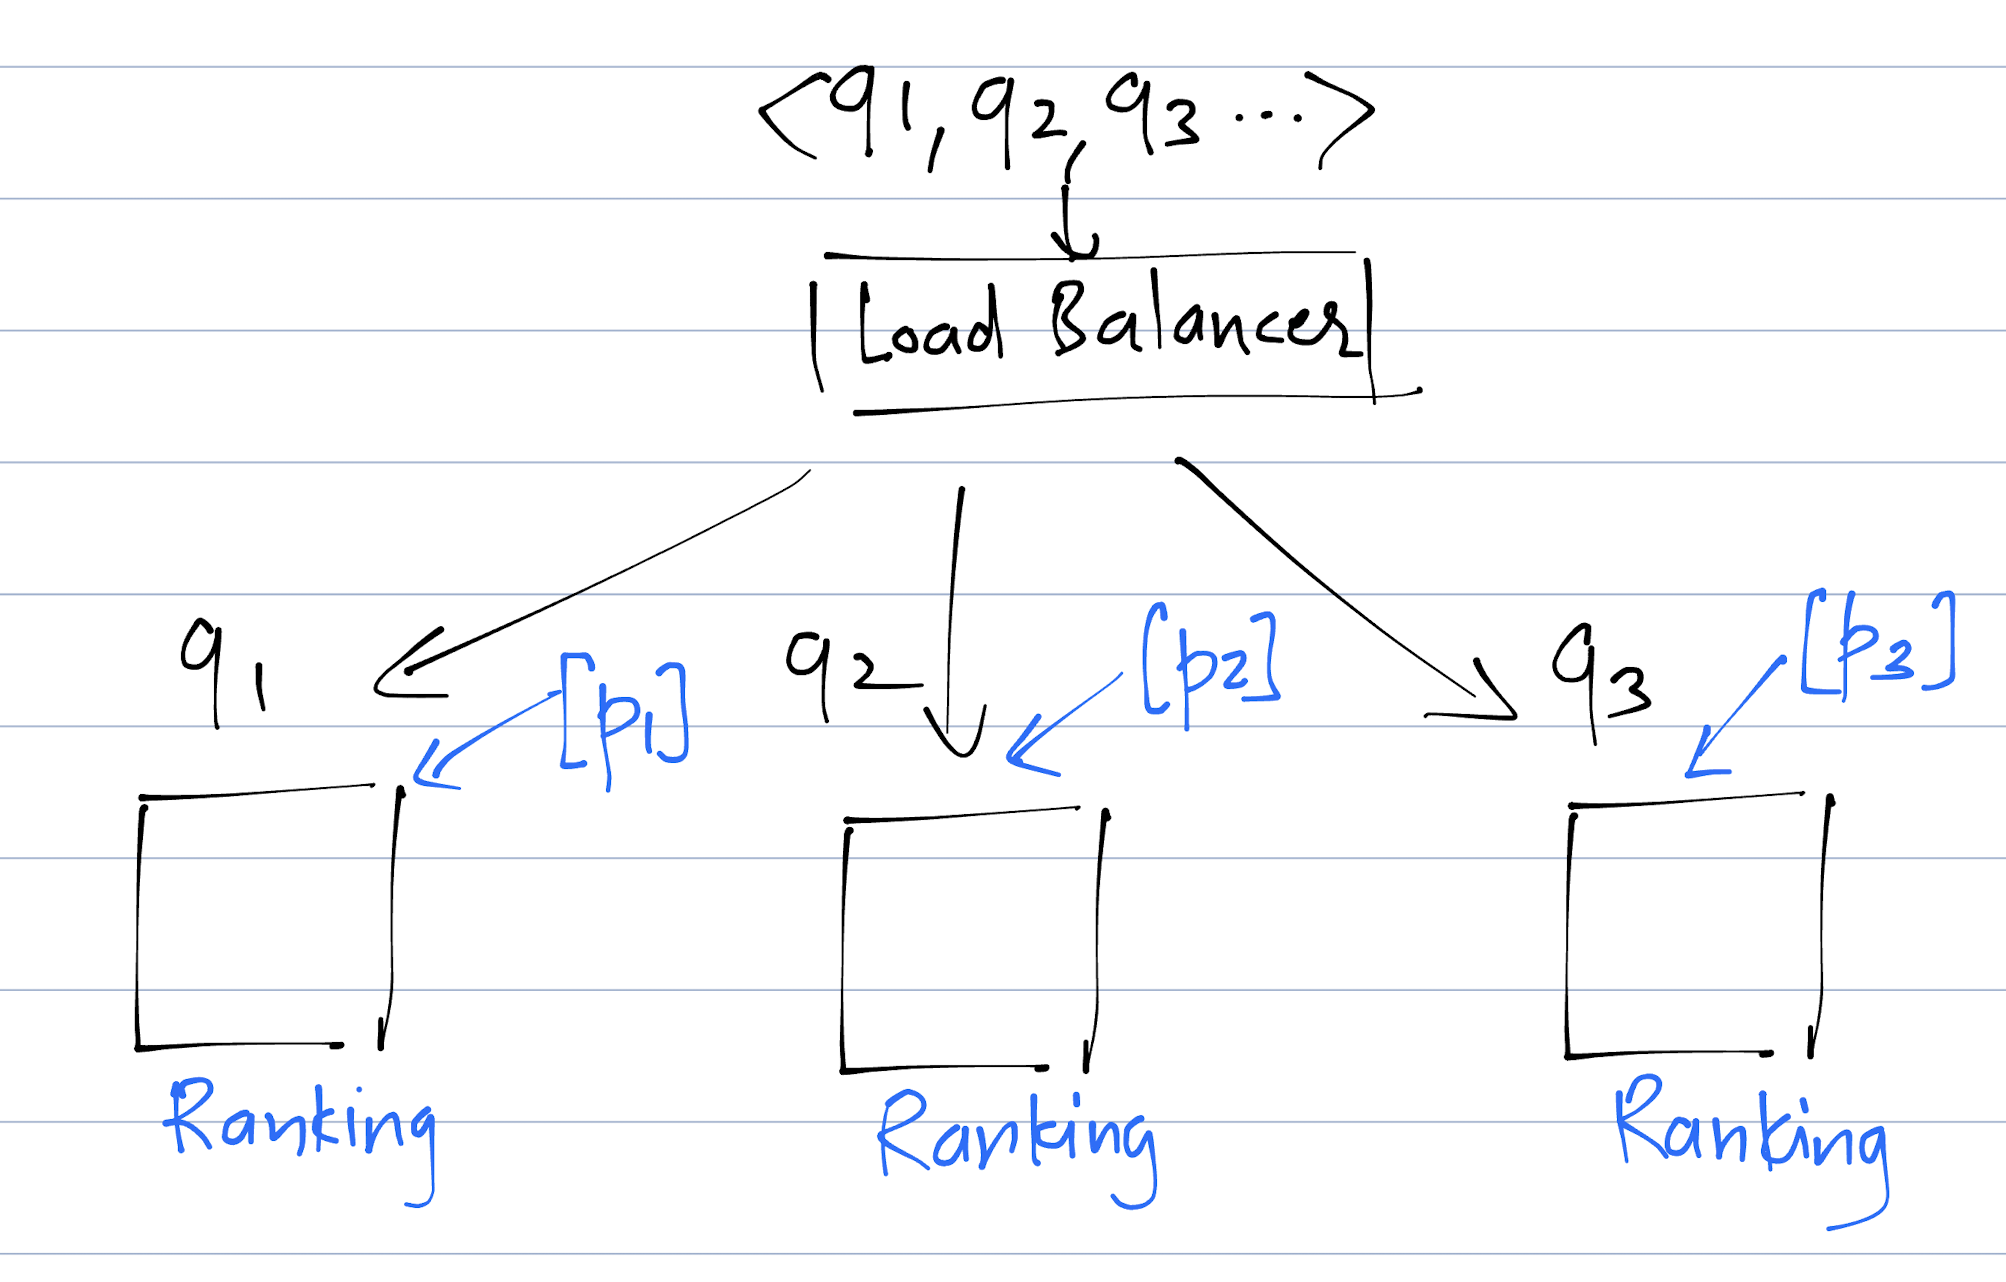 <q1, q2, q3 ...>
Load Balancer
q1 [p1] q2 [p2] q3 [p3]
Ranking Ranking Ranking